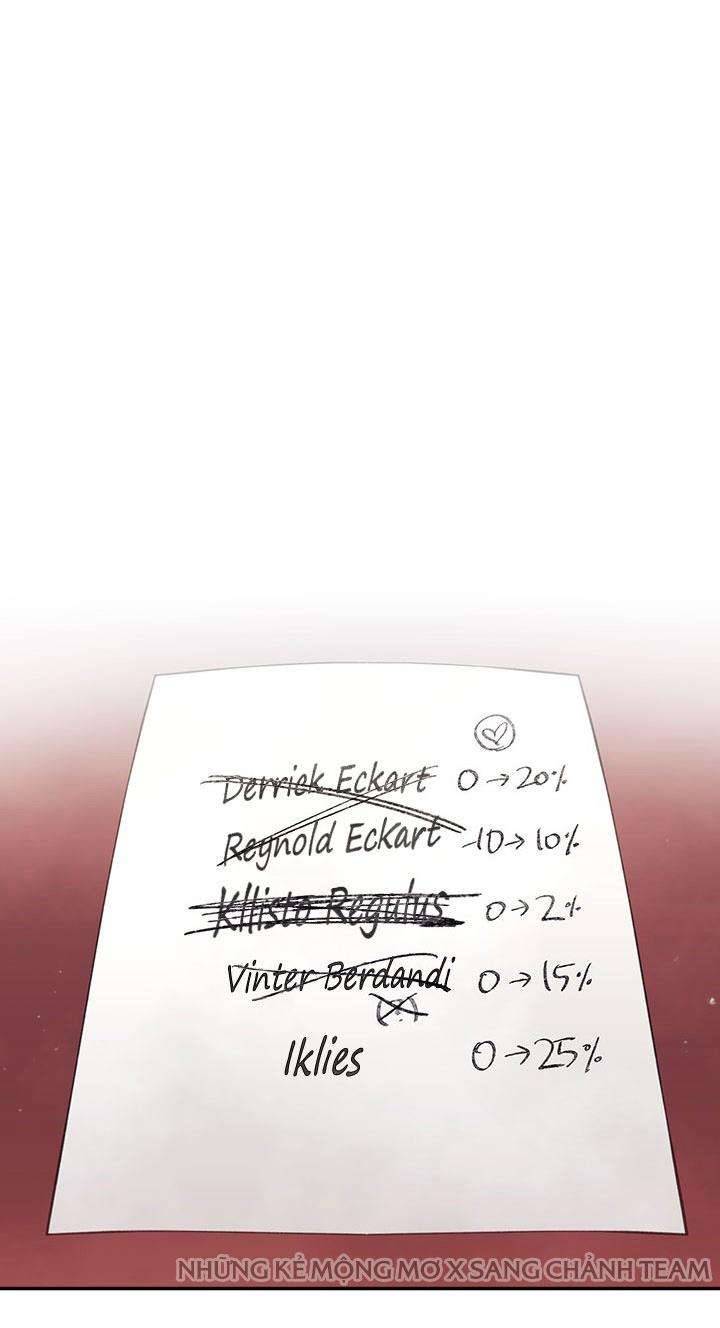 Derrick Eckart 0→20%
Reynold Eckart -10→10%
Kllisto Regulus 0→2%
Vinter Berdandi 0→15%
(?)
Iklies 0→25%
NHỮNG KẺ MỘNG MƠ X SANG CHẢNH TEAM